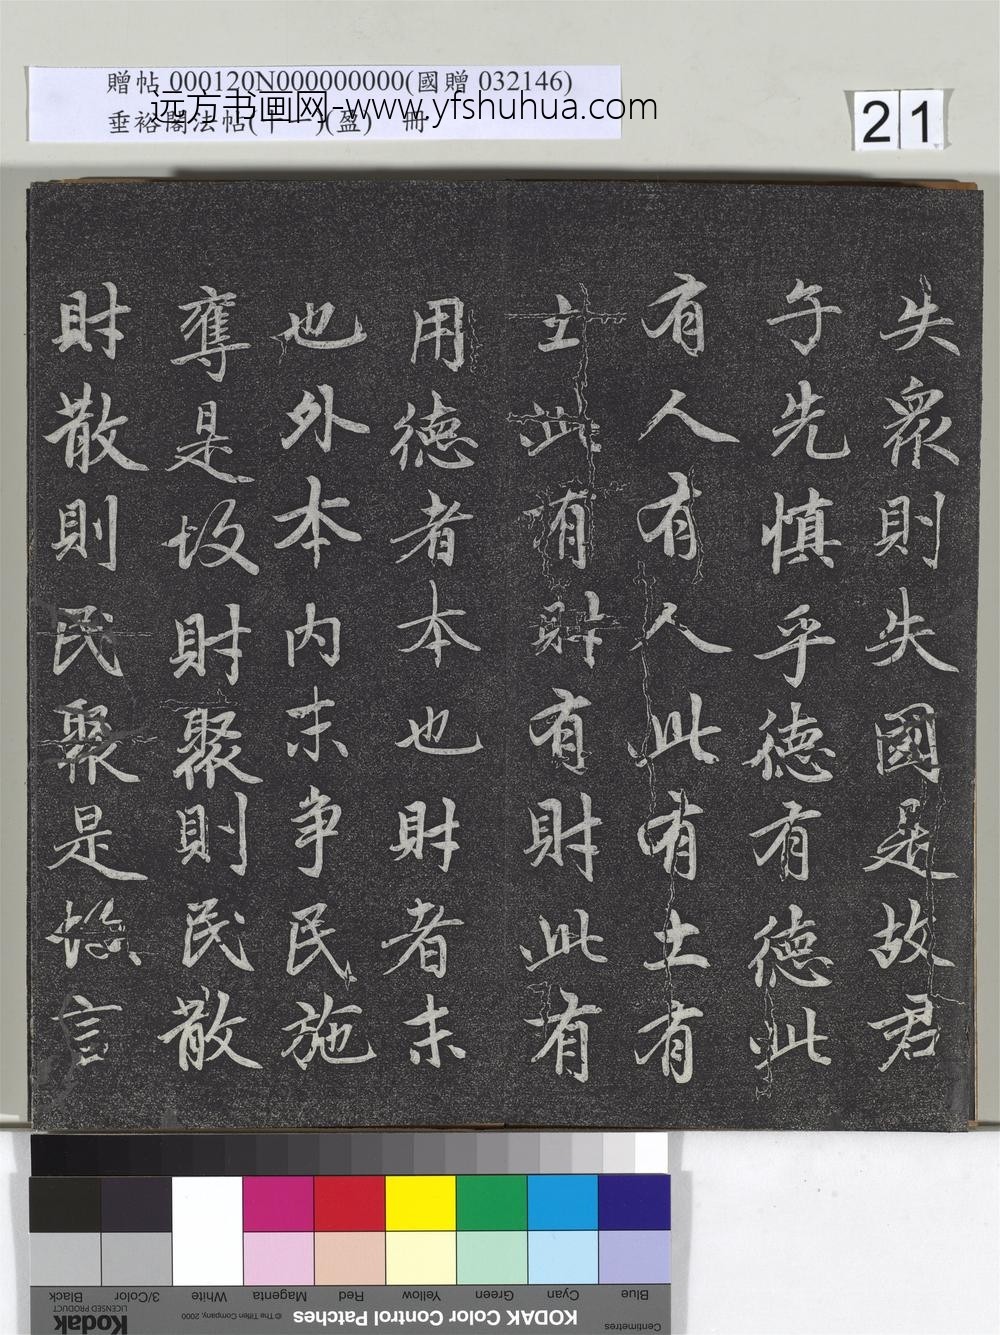 贈帖 000120N000000000(國贈 032146)
远方书画网-www.yfshuhua.com
垂裕閣法帖(十一)(盈) 冊
21
失衆則失國是故君
子先慎乎德有德此
有人有人此有土有
土此有財有財此有
用德者本也財者末
也外本内末争民施
奪是故財聚則民散
財散則民聚是故言
KODAK Color Control Patches
© The Tiffen Company, 2000
Kodak
LICENSED PRODUCT
Centimetres
Blue Cyan Green Yellow Red Magenta White 3/Color Black